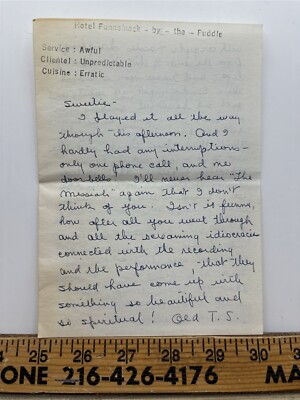 Hotel Funnelneck - by - the - Puddle
Service : Awful
Clientel : Unpredictable
Cuisine : Erratic
Sweetie -
I played it all the way
through this afternoon. And I
hardly had any interruptions -
only one phone call, and no
door bells. I'll never hear "The
Messiah" again that I don't
think of you. Isn't it funny,
how after all you went through
and all the screaming idiocracies
connected with the recording
and the performance, that they
should have come up with
something so beautiful and
so spiritual! Old T. S.
25 26 27 28 29 30 31
ONE 216-426-4176 MAX